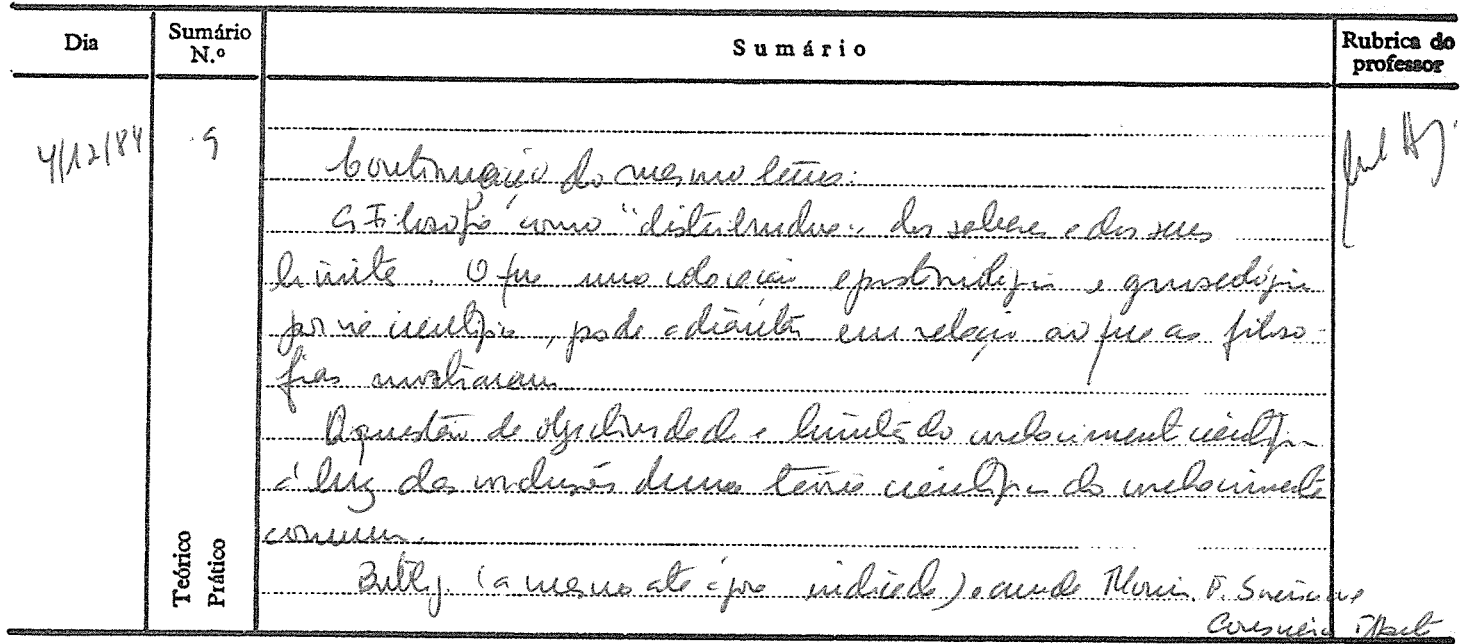 Dia
Sumário N.º
Sumário
Rubrica do professor
4/12/84
9
Continuação do mesmo tema:
A Filosofia como "distribuidora" dos saberes e dos seus
limites. O que uma colocação epistemológica e gnoseológica
científica, pode adiantar em relação ao que as filoso-
fias
A questão de objectividade e limites do conhecimento científico
à luz das conclusões duma teoria científica do conhecimento
comum.
Teórico
Prático
Bibliog. (a mesma até aqui indicada) e ainda Morin. F. Science
Conscience